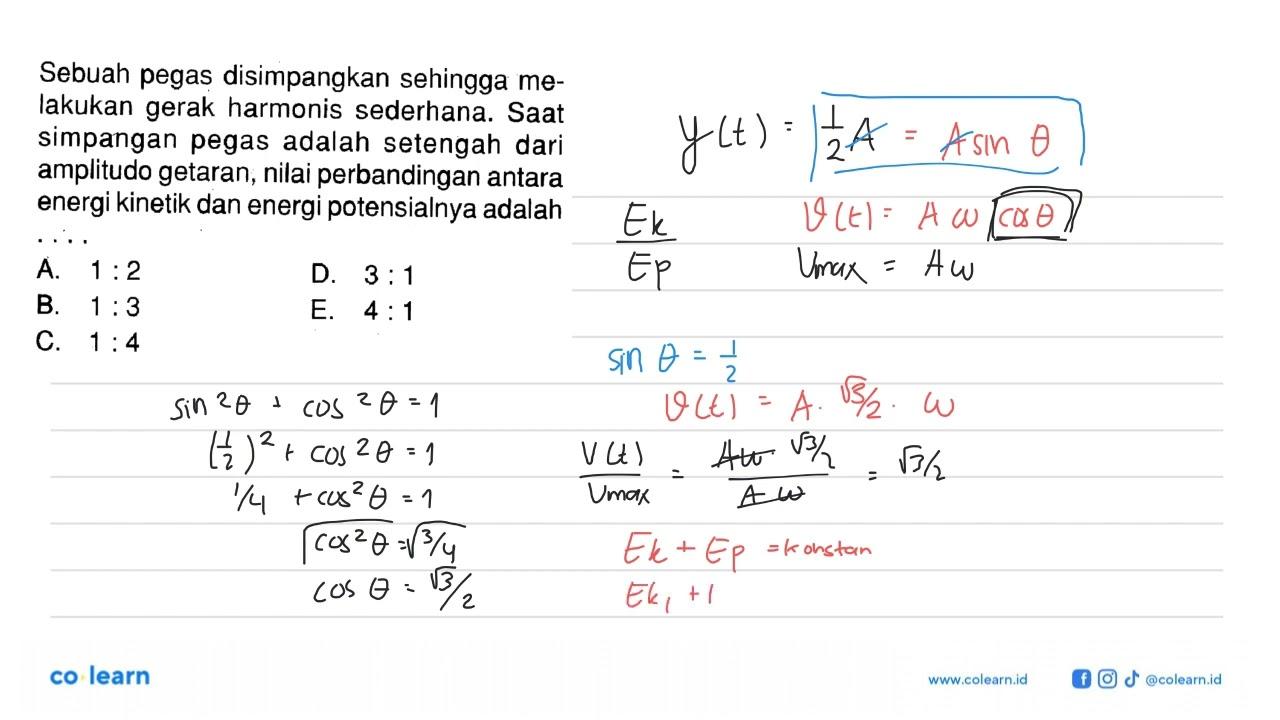 Sebuah pegas disimpangkan sehingga me-
lakukan gerak harmonis sederhana. Saat
simpangan pegas adalah setengah dari
amplitudo getaran, nilai perbandingan antara
energi kinetik dan energi potensialnya adalah
. . . .
A. 1 : 2
B. 1 : 3
C. 1 : 4
D. 3 : 1
E. 4 : 1
y(t) = 1/2 A = A sin θ
Ek/Ep
v(t) = A ω cos θ
Vmax = A ω
sin θ = 1/2
v(t) = A . √3/2 . ω
V(t)/Vmax = Aω √3/2 / Aω = √3/2
Ek + Ep = konstan
Ek₁ + 1
sin²θ + cos²θ = 1
(1/2)² + cos²θ = 1
1/4 + cos²θ = 1
√cos²θ = √3/4
cos θ = √3/2
co learn
www.colearn.id
@colearn.id